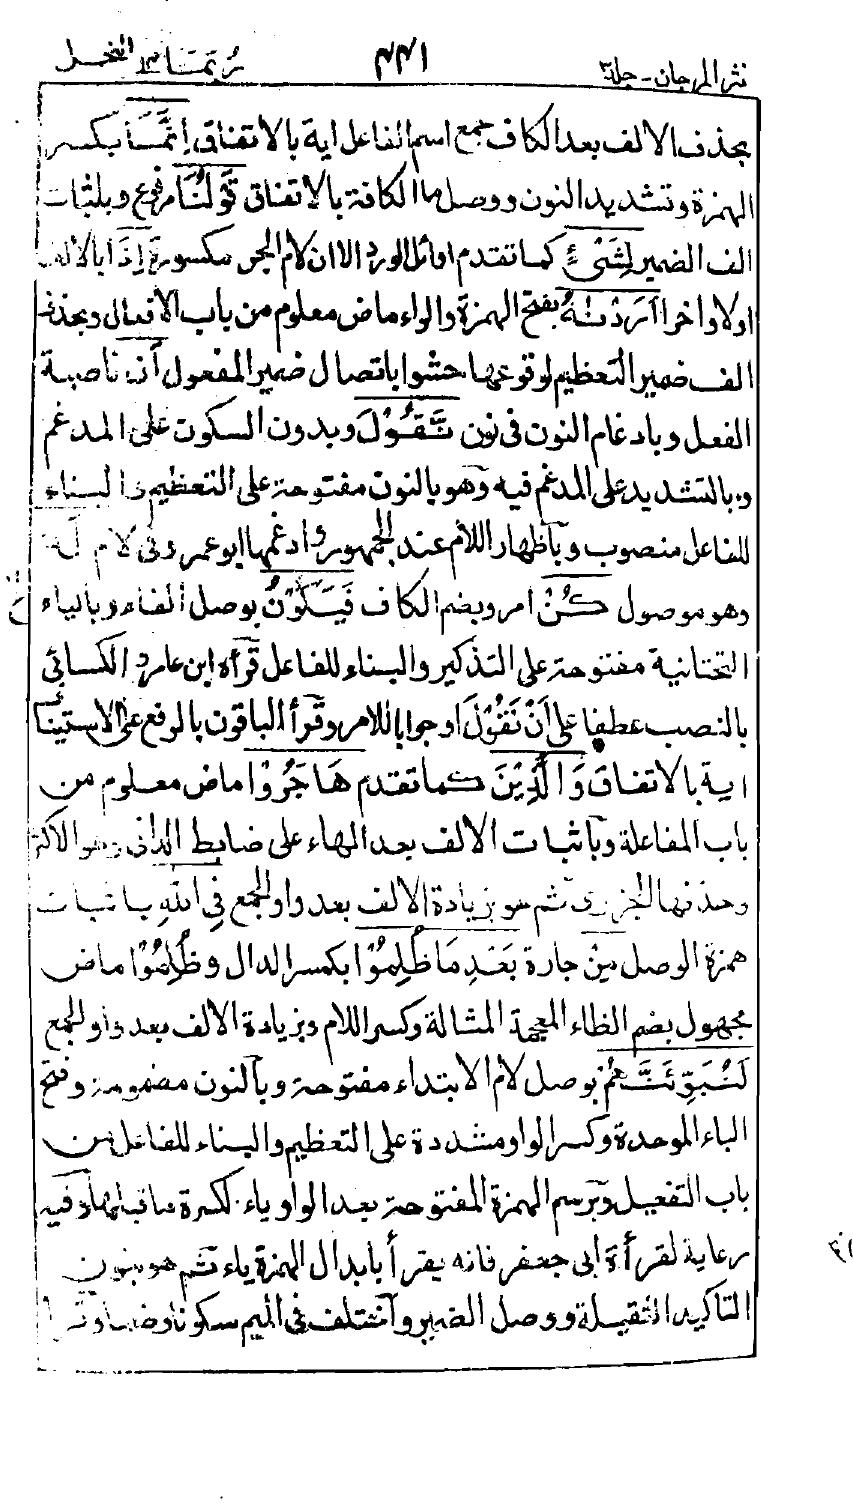 نثر المرجان - جلد ٣
٤٤١
ربما النحل
بحذف الالف بعد الكاف جمع اسم الفاعل اية بالاتفاق اِنَّمَا بكسر
الهمزة وتشديد النون ووصل ما الكافة بالاتفاق قَوْلُنَا مرفوع وباثبات
الف الضمير لِشَیْءٍ كما تقدم اوائل الورد الا ان لام الجر مكسورة اِذَا بالالف
اولا واخرا اَرَدْنٰهُ بفتح الهمزة والراء ماض معلوم من باب الافعال وبحذف
الف ضمير التعظيم لوقوعها حشوا باتصال ضمير المفعول اَنْ ناصبة
الفعل وبادغام النون فى نون نَّقُوْلَ وبدون السكون على المدغم
وبالتشديد على المدغم فيه وهو بالنون مفتوحة على التعظيم والبناء
للفاعل منصوب وباظهار اللام عند الجمهور وادغمها ابو عمرو فى لام لَهٗ
وهو موصول كُنْ امر وبضم الكاف فَيَكُوْنُ بوصل الفاء وبالياء
التحتانية مفتوحة على التذكير والبناء للفاعل قرأه ابن عامر والكسائي
بالنصب عطفا على اَنْ نَقُوْلَ او جوابا للامر وقرأ الباقون بالرفع على الاستيناف
اية بالاتفاق وَالَّذِيْنَ كما تقدم هَاجَرُوْا ماض معلوم من
باب المفاعلة وباثبات الالف بعد الهاء على ضابط الدانى وهو الاكثر
وحذفها الجزرى ثم هو بزيادة الالف بعد واو الجمع فِى اللّٰهِ باثبات
همزة الوصل مِنْ جارة بَعْدِ مَا ظُلِمُوْا بكسر الدال وظُلِمُوْا ماض
مجهول بضم الظاء المعجمة المشالة وكسر اللام وبزيادة الالف بعد واو الجمع
لَنُبَوِّئَنَّهُمْ بوصل لام الابتداء مفتوحة وبالنون مضمومة وفتح
الباء الموحدة وكسر الواو مشددة على التعظيم والبناء للفاعل من
باب التفعيل وبرسم الهمزة المفتوحة بعد الواو ياء لكسرة ما قبلها وفيه
رعاية لقرأة ابى جعفر فانه يقرأ بابدال الهمزة ياء ثم هو بنون
التاكيد الثقيلة ووصل الضمير واختلف فى الميم سكونا وضما